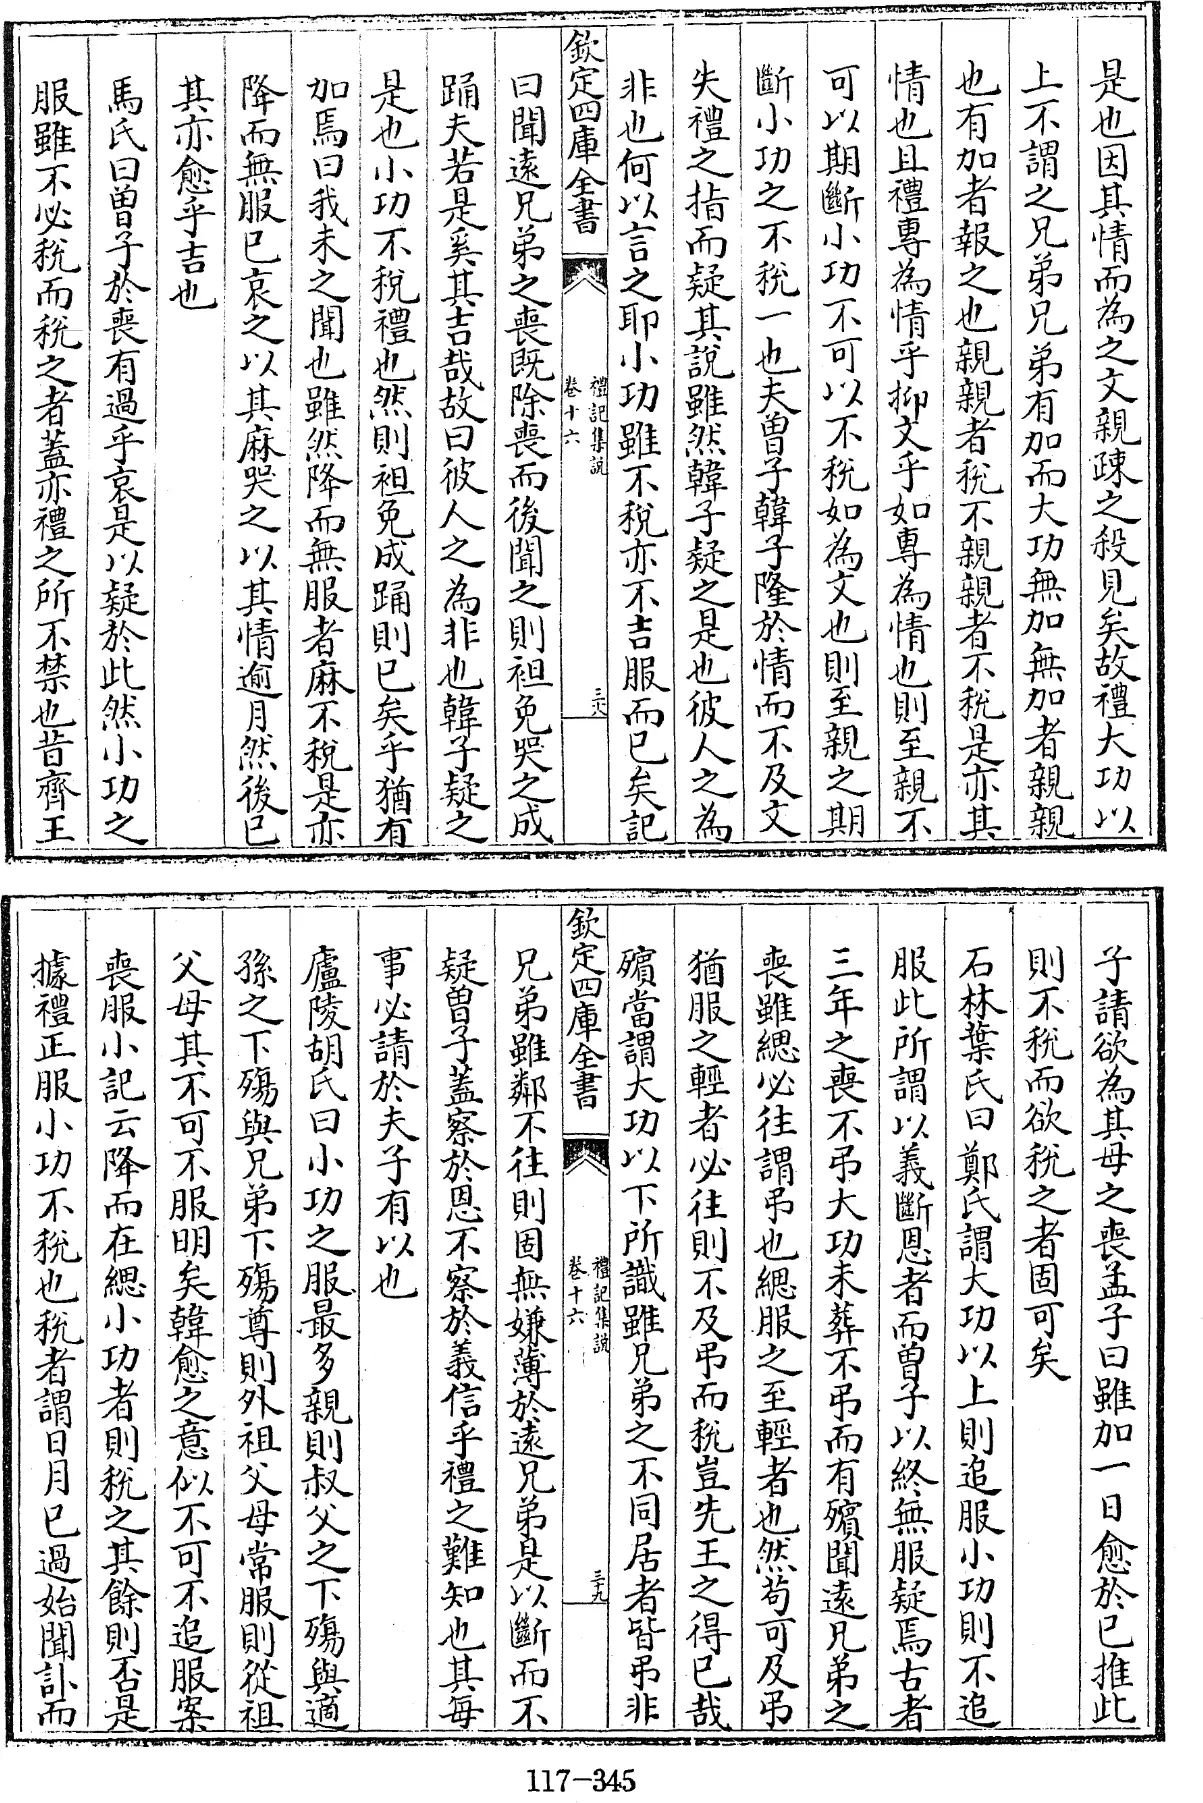 是也因其情而為之文親疎之殺見矣故禮大功以
上不謂之兄弟兄弟有加而大功無加無加者親親
也有加者報之也親親者稅不親親者不稅是亦其
情也且禮專為情乎抑文乎如專為情也則至親不
可以期斷小功不可以不稅如為文也則至親之期
斷小功之不稅一也夫曽子韓子隆於情而不及文
失禮之指而疑其說雖然韓子疑之是也彼人之為
非也何以言之耶小功雖不稅亦不吉服而已矣記
欽定四庫全書
禮記集說
卷十六
三八
曰聞遠兄弟之喪既除喪而後聞之則袒免哭之成
踊夫若是奚其吉哉故曰彼人之為非也韓子疑之
是也小功不稅禮也然則袒免成踊則已矣乎猶有
加焉曰我未之聞也雖然降而無服者麻不稅是亦
降而無服已哀之以其麻哭之以其情逾月然後已
其亦愈乎吉也
馬氏曰曽子於喪有過乎哀是以疑於此然小功之
服雖不必稅而稅之者蓋亦禮之所不禁也昔齊王
子請欲為其母之喪孟子曰雖加一日愈於已推此
則不稅而欲稅之者固可矣
石林葉氏曰鄭氏謂大功以上則追服小功則不追
服此所謂以義斷恩者而曽子以終無服疑焉古者
三年之喪不弔大功未葬不弔而有殯聞遠兄弟之
喪雖緦必往謂弔也緦服之至輕者也然苟可及弔
猶服之輕者必往則不及弔而稅豈先王之得已哉
殯當謂大功以下所識雖兄弟之不同居者皆弔非
欽定四庫全書
禮記集說
卷十六
三十九
兄弟雖鄰不往則固無嫌薄於遠兄弟是以斷而不
疑曽子蓋察於恩不察於義信乎禮之難知也其每
事必請於夫子有以也
廬陵胡氏曰小功之服最多親則叔父之下殤與適
孫之下殤與兄弟下殤尊則外祖父母常服則從祖
父母其不可不服明矣韓愈之意似不可不追服案
喪服小記云降而在緦小功者則稅之其餘則否是
據禮正服小功不稅也稅者謂日月已過始聞訃而
117-345